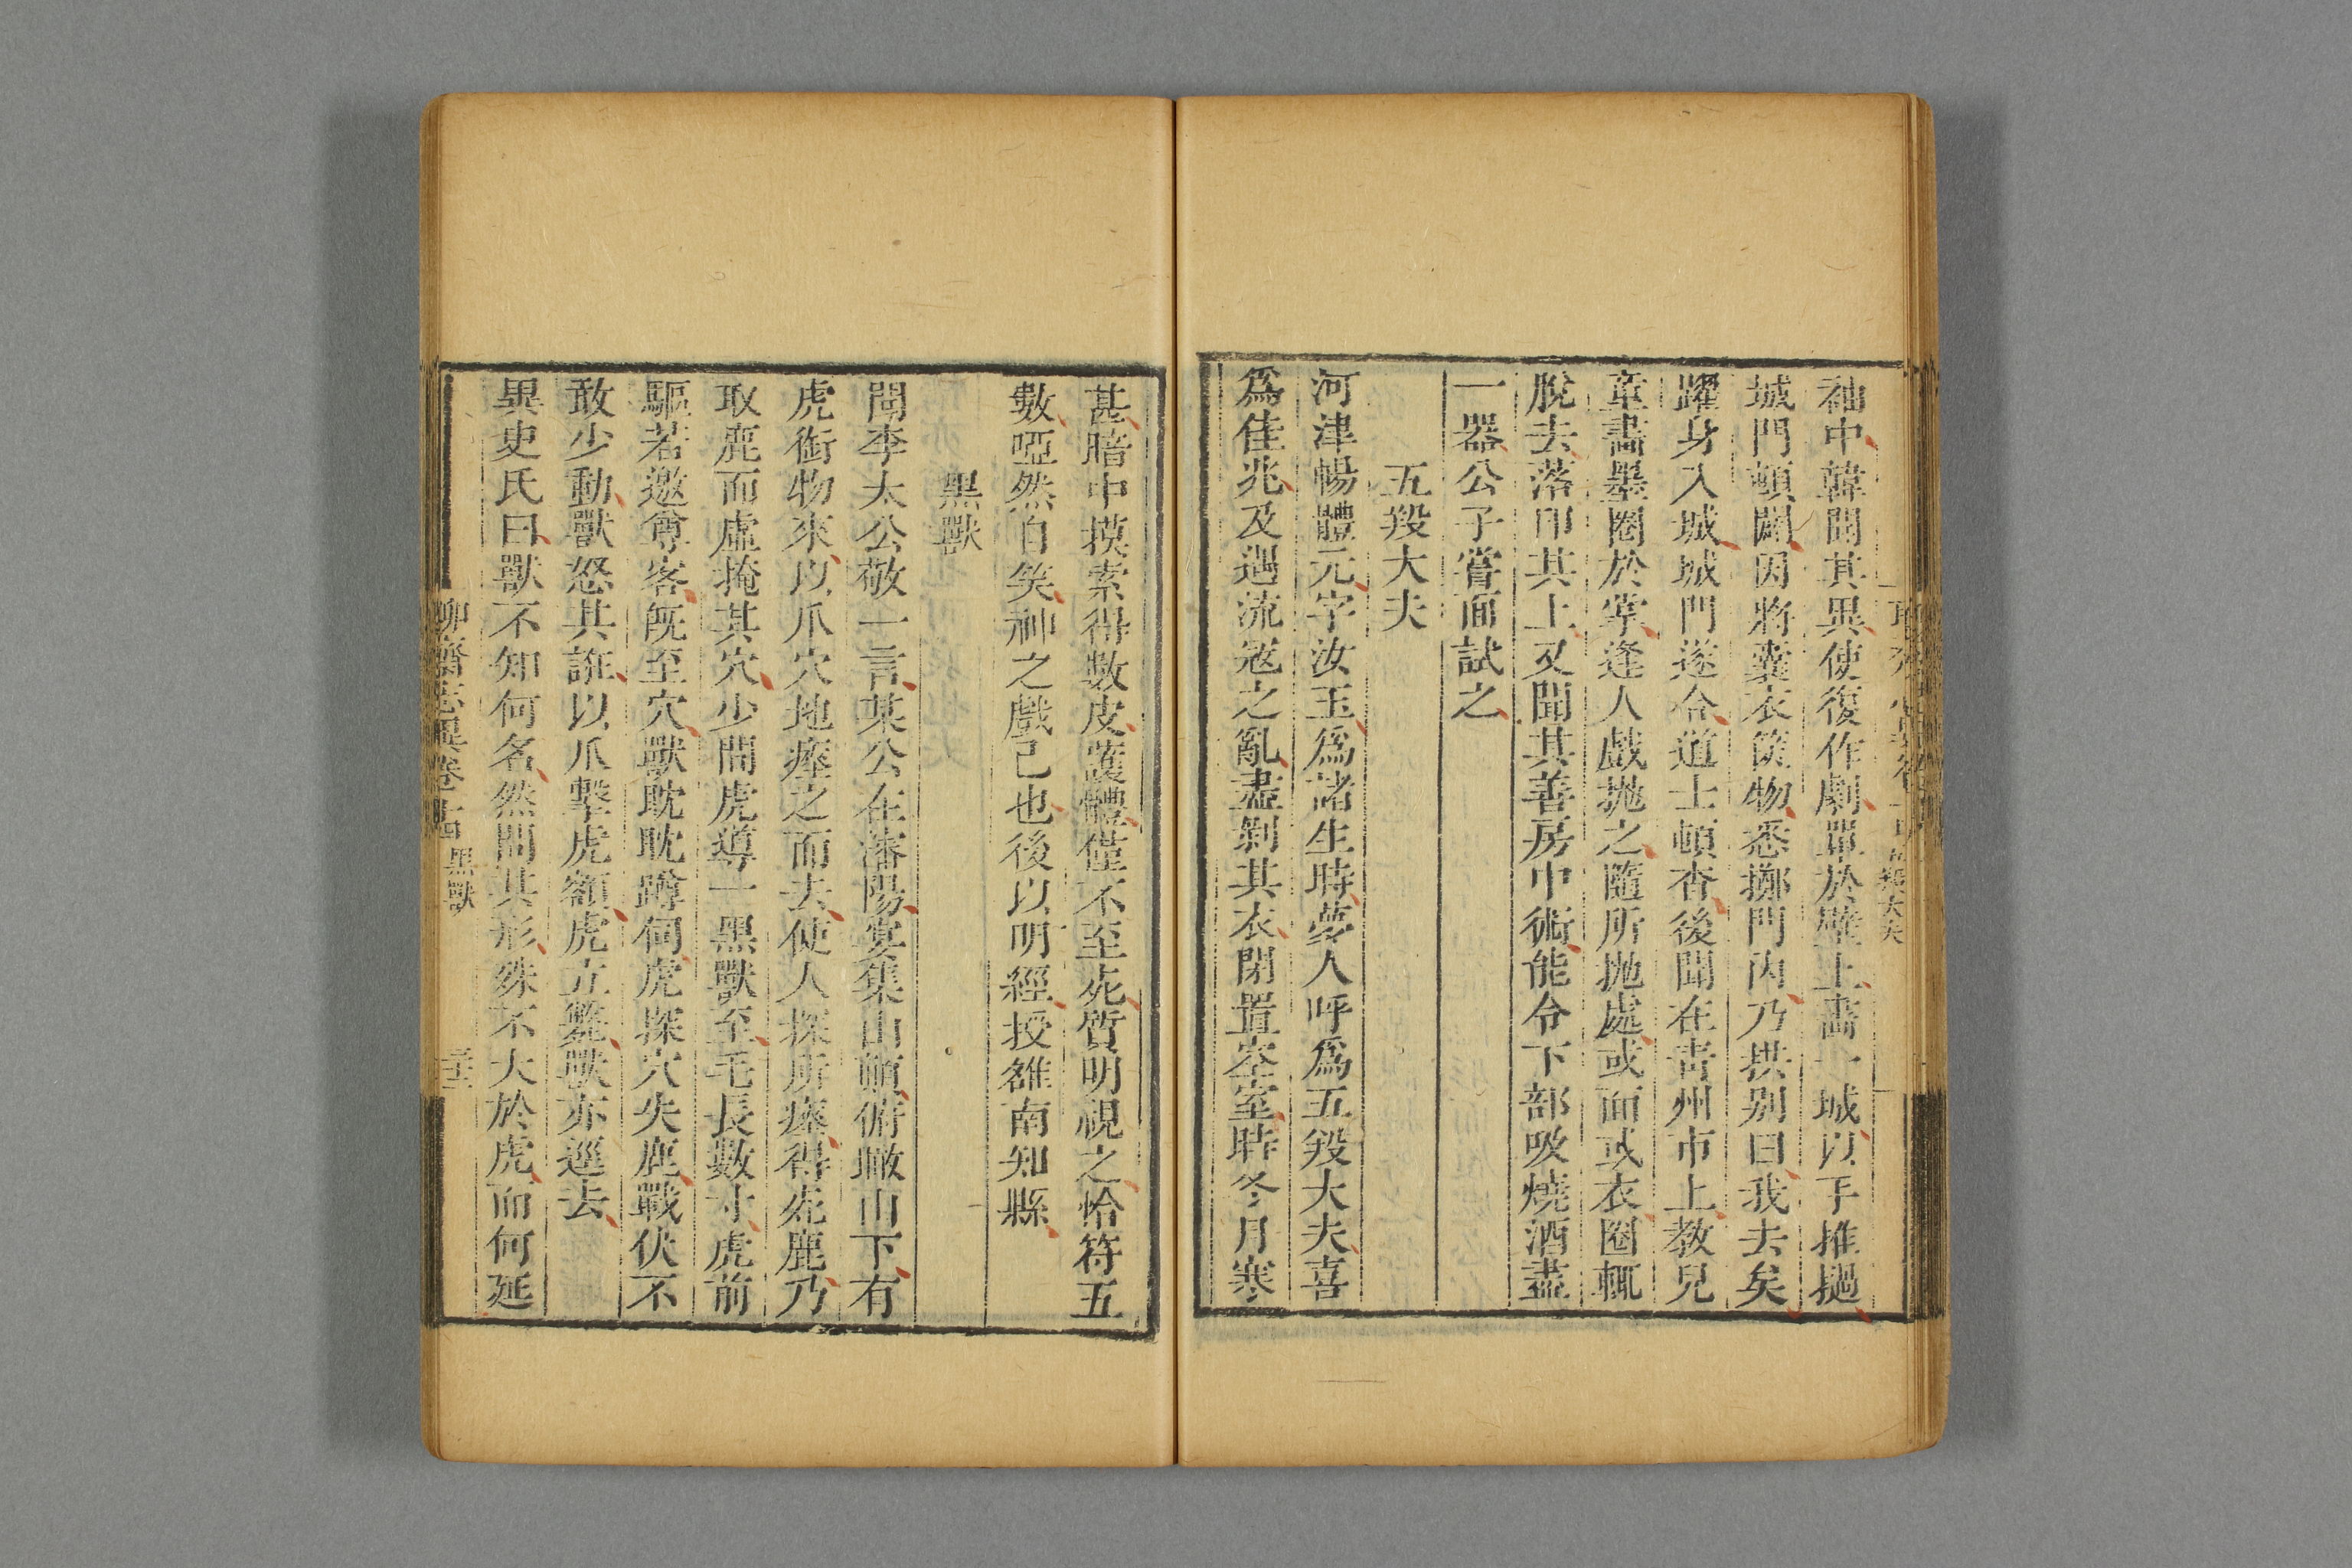 袖中韓聞其異使復作劇單於壁上畫一城以手推撾
城門頓闢因將囊衣篋物悉擲門內乃拱別曰我去矣
躍身入城城門遂合道士頓杳後聞在青州市上教兒
童畫墨圈於掌逢人戲拋之隨所拋處或面或衣圈輒
脫去落印其上又聞其善房中術能令下部吸燒酒盡
一器公子嘗面試之
五羖大夫
河津暢體元字汝玉爲諸生時夢人呼爲五羖大夫喜
爲佳兆及遇流寇之亂盡剝其衣閉置空室時冬月寒
甚暗中摸索得數皮護體僅不至死質明視之恰符五
數啞然自笑神之戲己也後以明經授雒南知縣
黑獸
聞李太公敬一言某公在瀋陽宴集山巔俯瞰山下有
虎銜物來以爪穴地瘞之而去使人探所瘞得死鹿乃
取鹿而虛掩其穴少間虎導一黑獸至毛長數寸虎前
驅若邀尊客既至穴獸眈眈蹲伺虎探穴失鹿戰伏不
敢少動獸怒其誑以爪擊虎額虎立斃獸亦逕去
異史氏曰獸不知何名然問其形殊不大於虎而何延
聊齋志異卷十四 黑獸